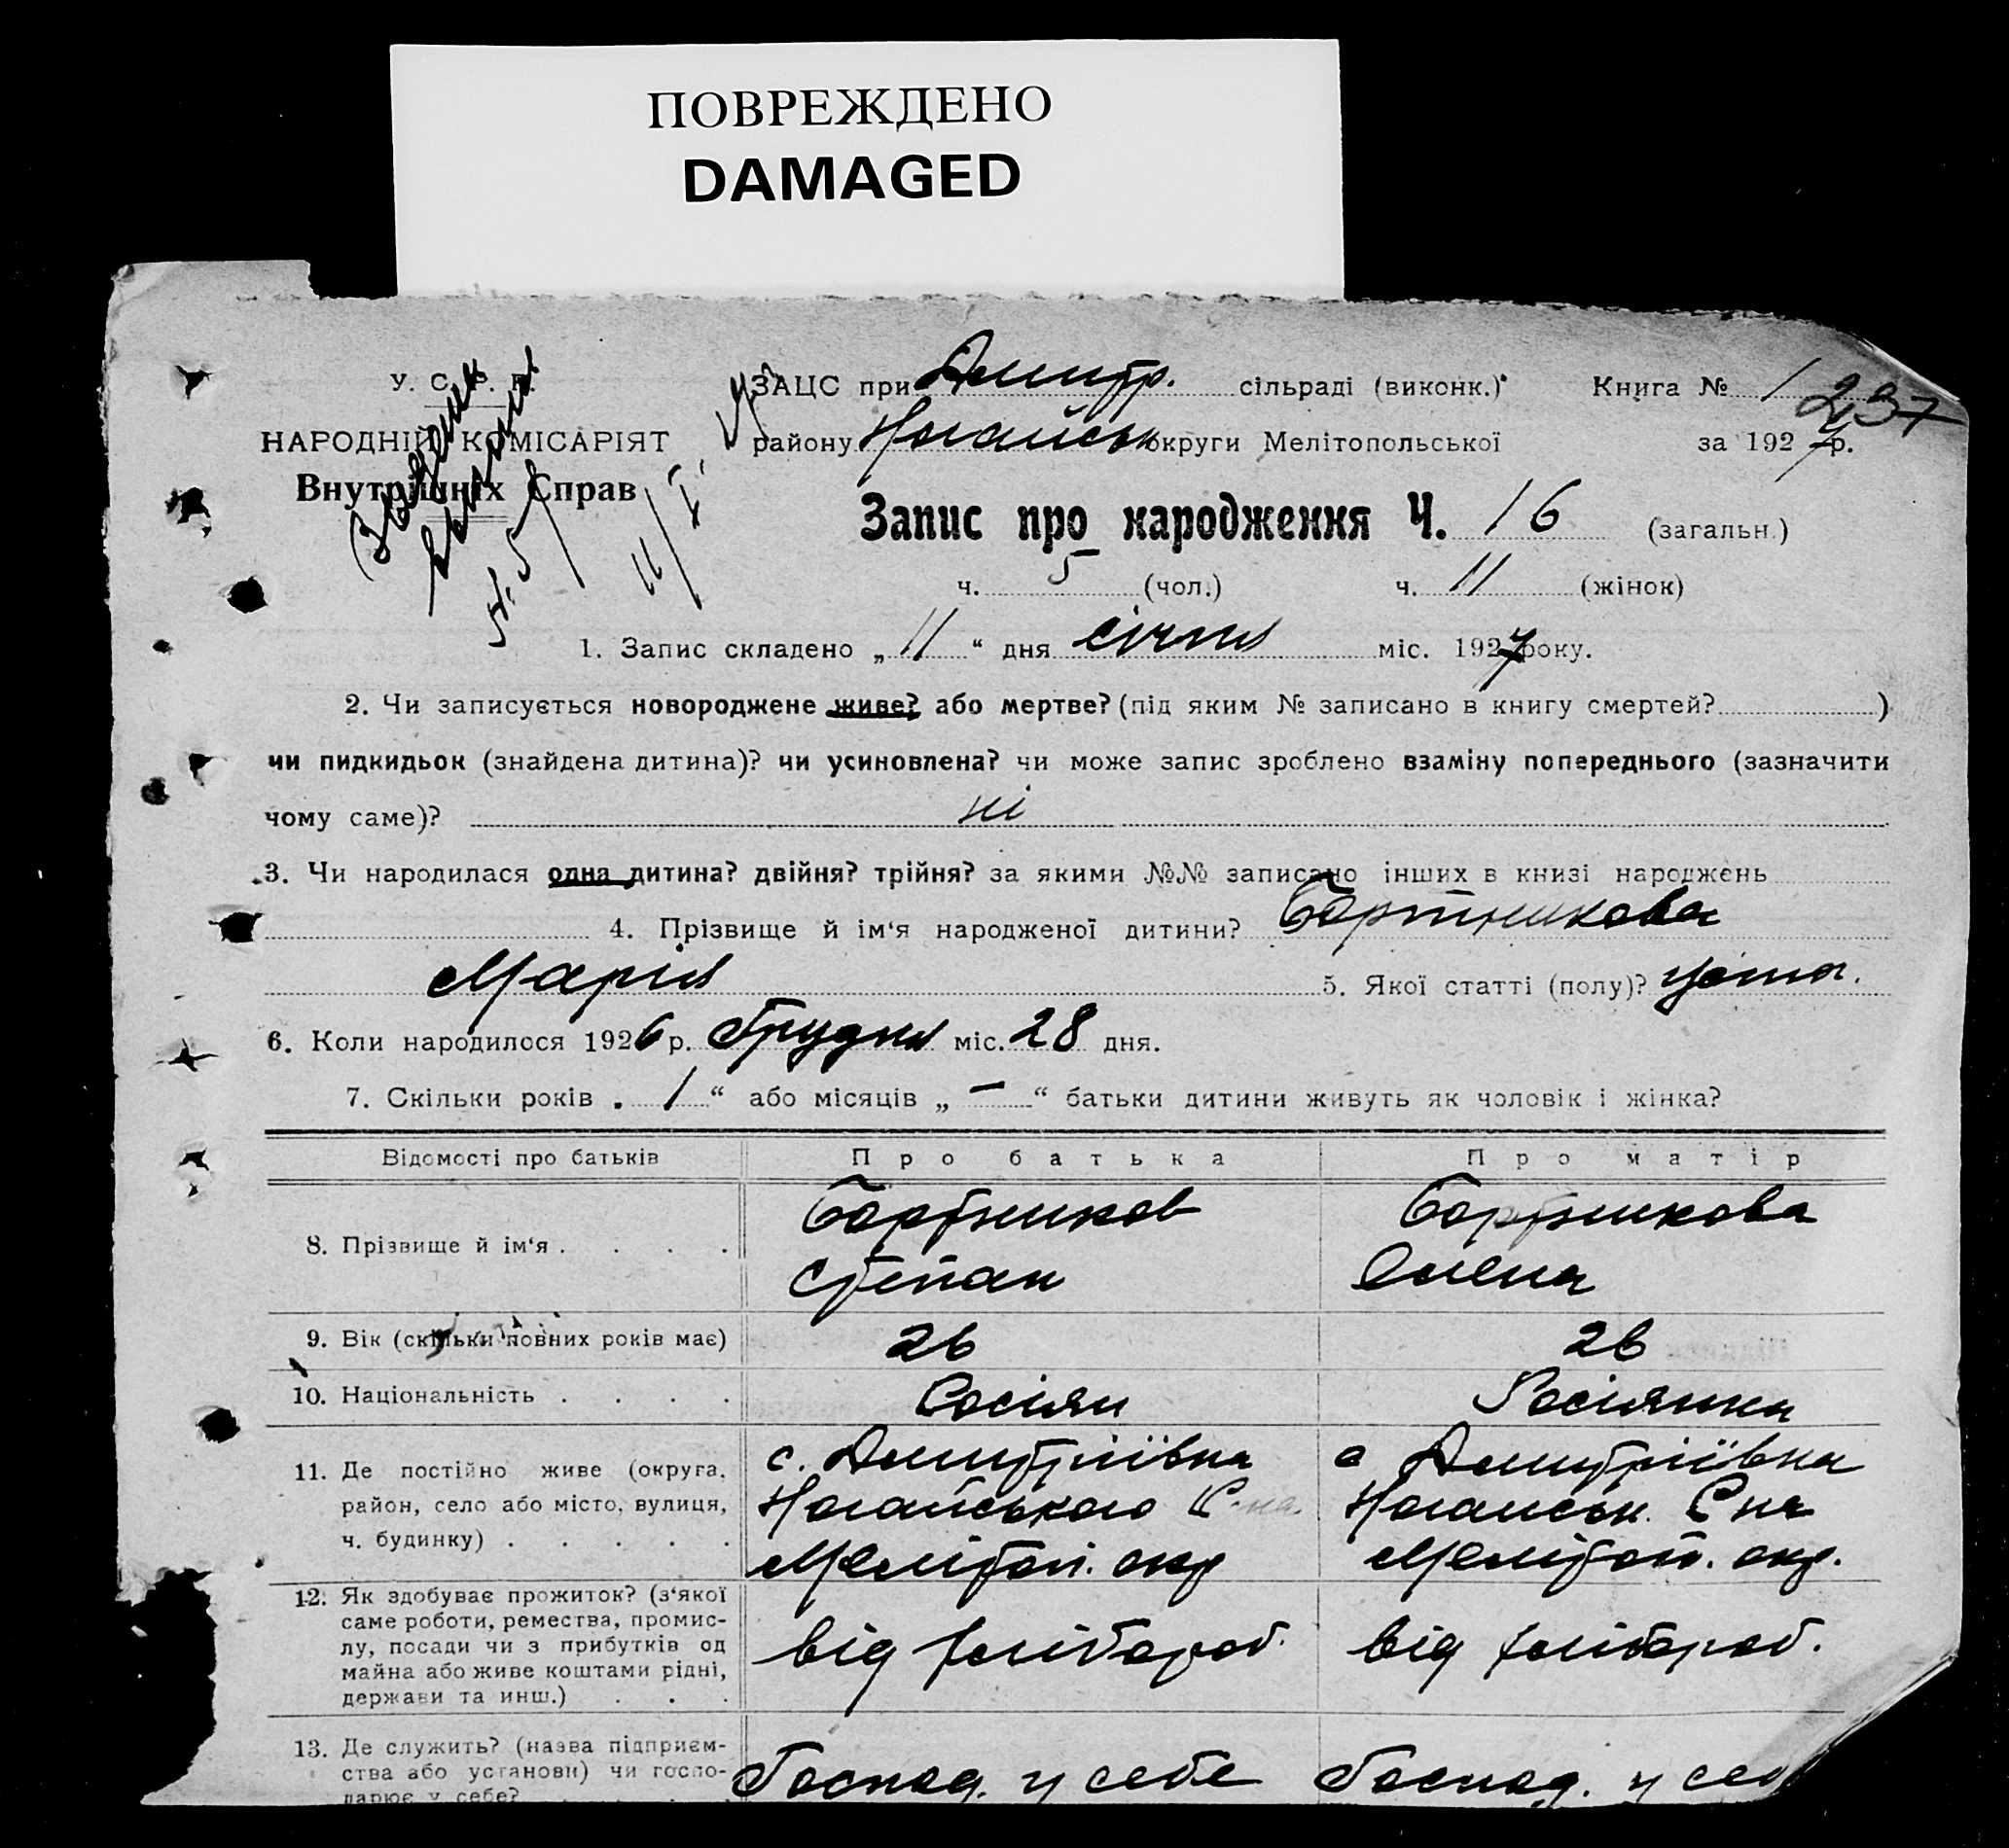 ПОВРЕЖДЕНО
DAMAGED
У. С. Р. Р.
НАРОДНІЙ КОМІСАРІЯТ
Внутрішніх Справ
ЗАЦС при Дмитр. сільраді (виконк.) Книга № 1
237
району Ногайськ округи Мелітопольської за 1927 р.
Запис про народження Ч. 16 (загальн.)
ч. 5 (чол.) ч. 11 (жінок)
1. Запис складено „11“ дня січня міс. 1927 року.
2. Чи записується новороджене живе? або мертве? (під яким № записано в книгу смертей? )
чи пидкидьок (знайдена дитина)? чи усиновлена? чи може запис зроблено взаміну попереднього (зазначити
чому саме)? ні
3. Чи народилася одна дитина? двійня? трійня? за якими №№ записано інших в книзі народжень
4. Прізвище й ім‘я народженої дитини? Бортникова
Марія 5. Якої статті (полу)?
6. Коли народилося 1926 р. Грудня міс. 28 дня.
7. Скільки років „1“ або місяців „—“ батьки дитини живуть як чоловік і жінка?
Відомості про батьків Про батька Про матір
8. Прізвище й ім‘я . . . . Бортников Бортникова
Степан Олена
9. Вік (скільки повних років має) 26 26
10. Національність . . . . Росіян Росіянка
11. Де постійно живе (округа, с. Дмитріївка с Дмитріївка
район, село або місто, вулиця, Ногайського Р-на. Ногайськ. Р на
ч. будинку) . . . . . Меліtoп. окр Мелітоп. окр.
12. Як здобуває прожиток? (з‘якої
саме роботи, ремества, промис-
лу, посади чи з прибутків од від хлібороб. від хлібороб.
майна або живе коштами рідні,
держави та инш.) . . .
13. Де служить? (назва підприєм-
ства або установи) чи госпо- Господ. у себе Господ. у себ
дарює у себе?